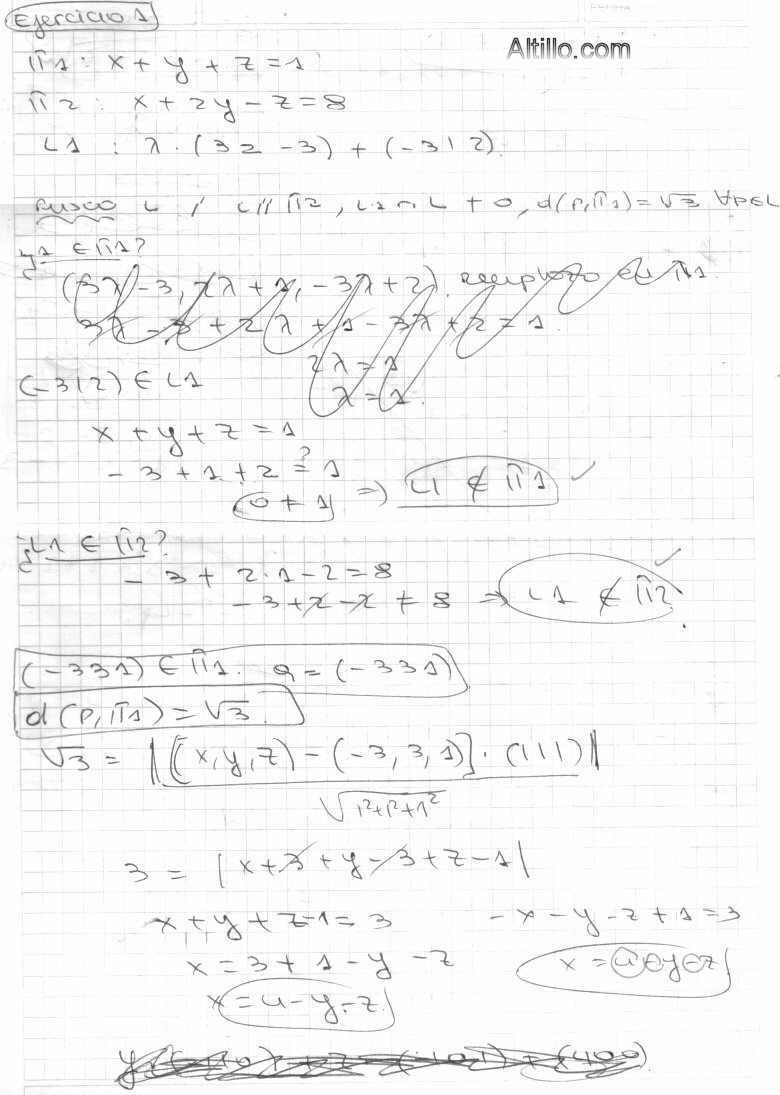 Ejercicio 1
Altillo.com
π1: x + y + z = 1
π2: x + 2y - z = 8
L1: λ·(3 2 -3) + (-3 1 2).
Busco L / L // π2, L1 ∩ L ≠ 0, d(P, π1) = √3 ∀P∈L
¿L1 ∈ π1?
(3λ - 3, 2λ + 1, -3λ + 2). reemplazo en π1.
3λ - 3 + 2λ + 1 - 3λ + 2 = 1.
2λ = 1
(-3 1 2) ∈ L1
λ = 1.
x + y + z = 1
-3 + 1 + 2 =? 1
0 ≠ 1 => L1 ∉ π1 ✓
¿L1 ∈ π2?
-3 + 2·1 - 2 = 8
-3 + 2 - 2 ≠ 8 => L1 ∉ π2. ✓
(-3 3 1) ∈ π1. Q = (-3 3 1)
d(P, π1) = √3.
√3 = |[(x, y, z) - (-3, 3, 1)] · (1 1 1)|
√1²+1²+1²
3 = |x + 3 + y - 3 + z - 1|
x + y + z - 1 = 3 -x - y - z + 1 = 3
x = 3 + 1 - y - z x = 4 - y - z
x = 4 - y - z.